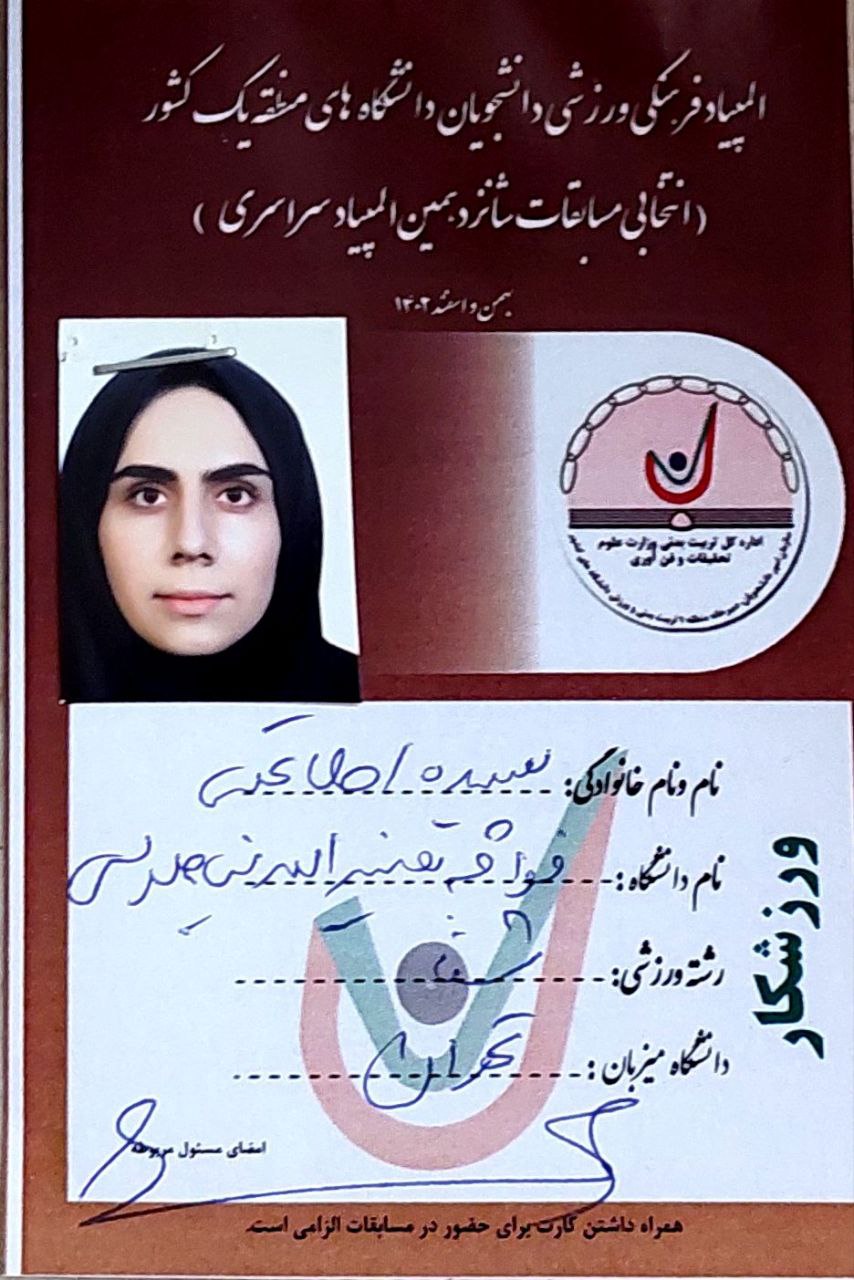 المپیاد فرهنگی ورزشی دانشجویان دانشگاه های منطقه یک کشور
(انتخابی مسابقات شانزدهمین المپیاد سراسری)
بهمن و اسفند ۱۴۰۲
اداره کل تربیت بدنی وزارت علوم
تحقیقات و فن آوری
ورزشکار
نام و نام خانوادگی:
نام دانشگاه: خواجه نصیرالدین طوسی
رشته ورزشی: شنا
دانشگاه میزبان: تهران
امضای مسئول مربوطه
همراه داشتن کارت برای حضور در مسابقات الزامی است.